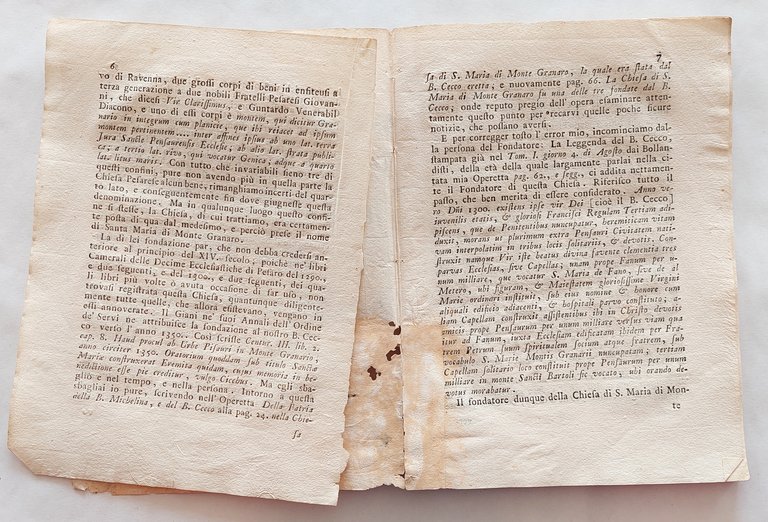 6
vo di Ravenna, due grossi corpi di beni in enfiteusi a
terza generazione a due nobili Fratelli Pesaresi Giovan-
ni, che dicesi Vir Clarissimus, e Guntardo Venerabil
Diacono, e uno di essi corpi è montem, qui dicitur Gra-
nario in integrum cum planicie, que ibi reiacet ad ipsum
montem pertinentem.... inter affines ipsius ab uno lat. terra
Jura Sancte Pensaurensis Ecclesie, ab alio lat. strata publi-
ca; a tertio lat. rivo, qui vocatur Genica; adque a quarto
lat. litus maris. Con tutto che invariabili sieno tre di
questi confini, pure non avendo più in quella parte la
Chiesa Pesarese alcun bene, rimanghiamo incerti del quar-
to lato, e conseguentemente fin dove giugnesse questa
denominazione. Ma in qualunque luogo questo confi-
ne si stesse, la Chiesa, di cui trattiamo, era certamen-
te posta di qua dal medesimo, e perciò prese il nome
di Santa Maria di Monte Granaro.
La di lei fondazione par, che non debba credersi an-
teriore al principio del XIV. secolo; poichè ne' libri
Camerali delle Decime Ecclesiastiche di Pesaro del 1290.
e due seguenti, e del 1300. e due seguenti, dei qua-
li libri più volte ò avuta occasione di far uso, non
trovasi registrata questa Chiesa, quantunque diligente-
mente tutte quelle, che allora esistevano, vengano in
essi annoverate. Il Giani ne' suoi Annali dell'Ordine
de' Servi ne attribuisce la fondazione al nostro B. Cec-
co verso l'anno 1350. Così scrisse Centur. III. lib. 2.
cap. 8. Haud procul ab Urbe Pisauri in Monte Granario,
anno circiter 1350. Oratorium quoddam sub titulo Sanctæ
Mariæ construxerat Eremita quidam, cujus memoria in be-
nedictione esse pie creditur, vulgo Cecchus. Ma egli sba-
gliò e nel tempo, e nella persona. Intorno a questa
sbagliai io pure, scrivendo nell'Operetta Della Patria
della B. Michelina, e del B. Cecco alla pag. 24. nella Chie-
sa
7
sa di S. Maria di Monte Granaro, la quale era stata dal
B. Cecco eretta; e nuovamente pag. 66. La Chiesa di S.
Maria di Monte Granaro fu una delle tre fondate dal B.
Cecco; onde reputo pregio dell' opera esaminare atten-
tamente questo punto per recarvi quelle poche sicure
notizie, che possano aversi.
E per corregger tosto l'error mio, incominciamo dal-
la persona del Fondatore: La Leggenda del B. Cecco,
stampata già nel Tom. I. giorno 4. di Agosto dai Bollan-
disti, della età della quale largamente parlai nella ci-
tata mia Operetta pag. 62., e segg., ci addita nettamen-
te il Fondatore di questa Chiesa. Riferisco tutto il
passo, che ben merita di essere considerato. Anno ve-
ro Dñi 1300. existens ipse vir Dei [cioè il B. Cecco]
juvenilis etatis, & gloriosi Francisci Regulam Tertiam adi-
piscens, que de Penitentibus nuncupatur, heremiticam vitam
duxit, morans ut plurimum extra Pensauri Civitatem nati-
vam interpolatim in tribus locis solitariis, & devotis. Con-
struxit namque Vir iste beatus divina favente clementia tres
parvas Ecclesias, sive Capellas; unam prope Fanum per u-
num milliare, que vocatur S. Maria de Fano, sive de al
Metero, ubi figuram, & Maiestatem gloriosissime Virgini
Marie ordinari instituit, sub eius nomine & honore cum
aliquali edificio adiacenti, & hospitali parvo constituto; a-
liam Capellam construxit assistentibus ibi in Christo devotis
amicis prope Pensaurum per unum milliare versus viam qua
itur ad Fanum, iuxta Ecclesiam edificatam ibidem per Fra-
trem Petrum suum Spiritualem socium atque fratrem, sub
vocabulo S. Marie Montis Granarii nuncupatam; tertiam
Capellam solitario loco constituit prope Pensaurum per unum
milliare in monte Sancti Bartoli sic vocato, ubi orando de-
votus morabatur.
Il fondatore dunque della Chiesa di S. Maria di Mon-
te